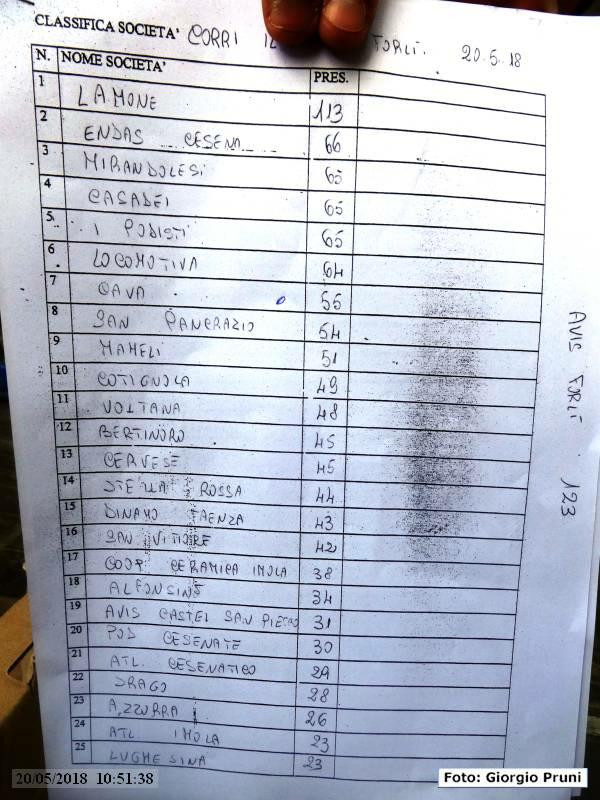 CLASSIFICA SOCIETA' CORRI IL FORLÌ. 20.5.18
N. NOME SOCIETA' PRES.
1 LAMONE 113
2 ENDAS CESENA 66
3 MIRANDOLESI 65
4 CASADEI 65
5 I PODISTI 65
6 LOCOMOTIVA 64
7 CAVA 55
8 SAN PANCRAZIO 54
9 MAMELI 51
10 COTIGNOLA 49
11 VOLTANA 48
12 BERTINORO 45
13 CERVESE 45
14 STELLA ROSSA 44
15 DINAMO FAENZA 43
16 SAN VITTORE 42
17 COOP CERAMICA IMOLA 38
18 ALFONSINE 34
19 AVIS CASTEL SAN PIETRO 31
20 POD CESENATE 30
21 ATL. CESENATICO 29
22 DRAGO 28
23 AZZURRA 26
24 ATL IMOLA 23
25 LUGHESINA 23
AVIS FORLÌ 123
20/05/2018 10:51:38
Foto: Giorgio Pruni